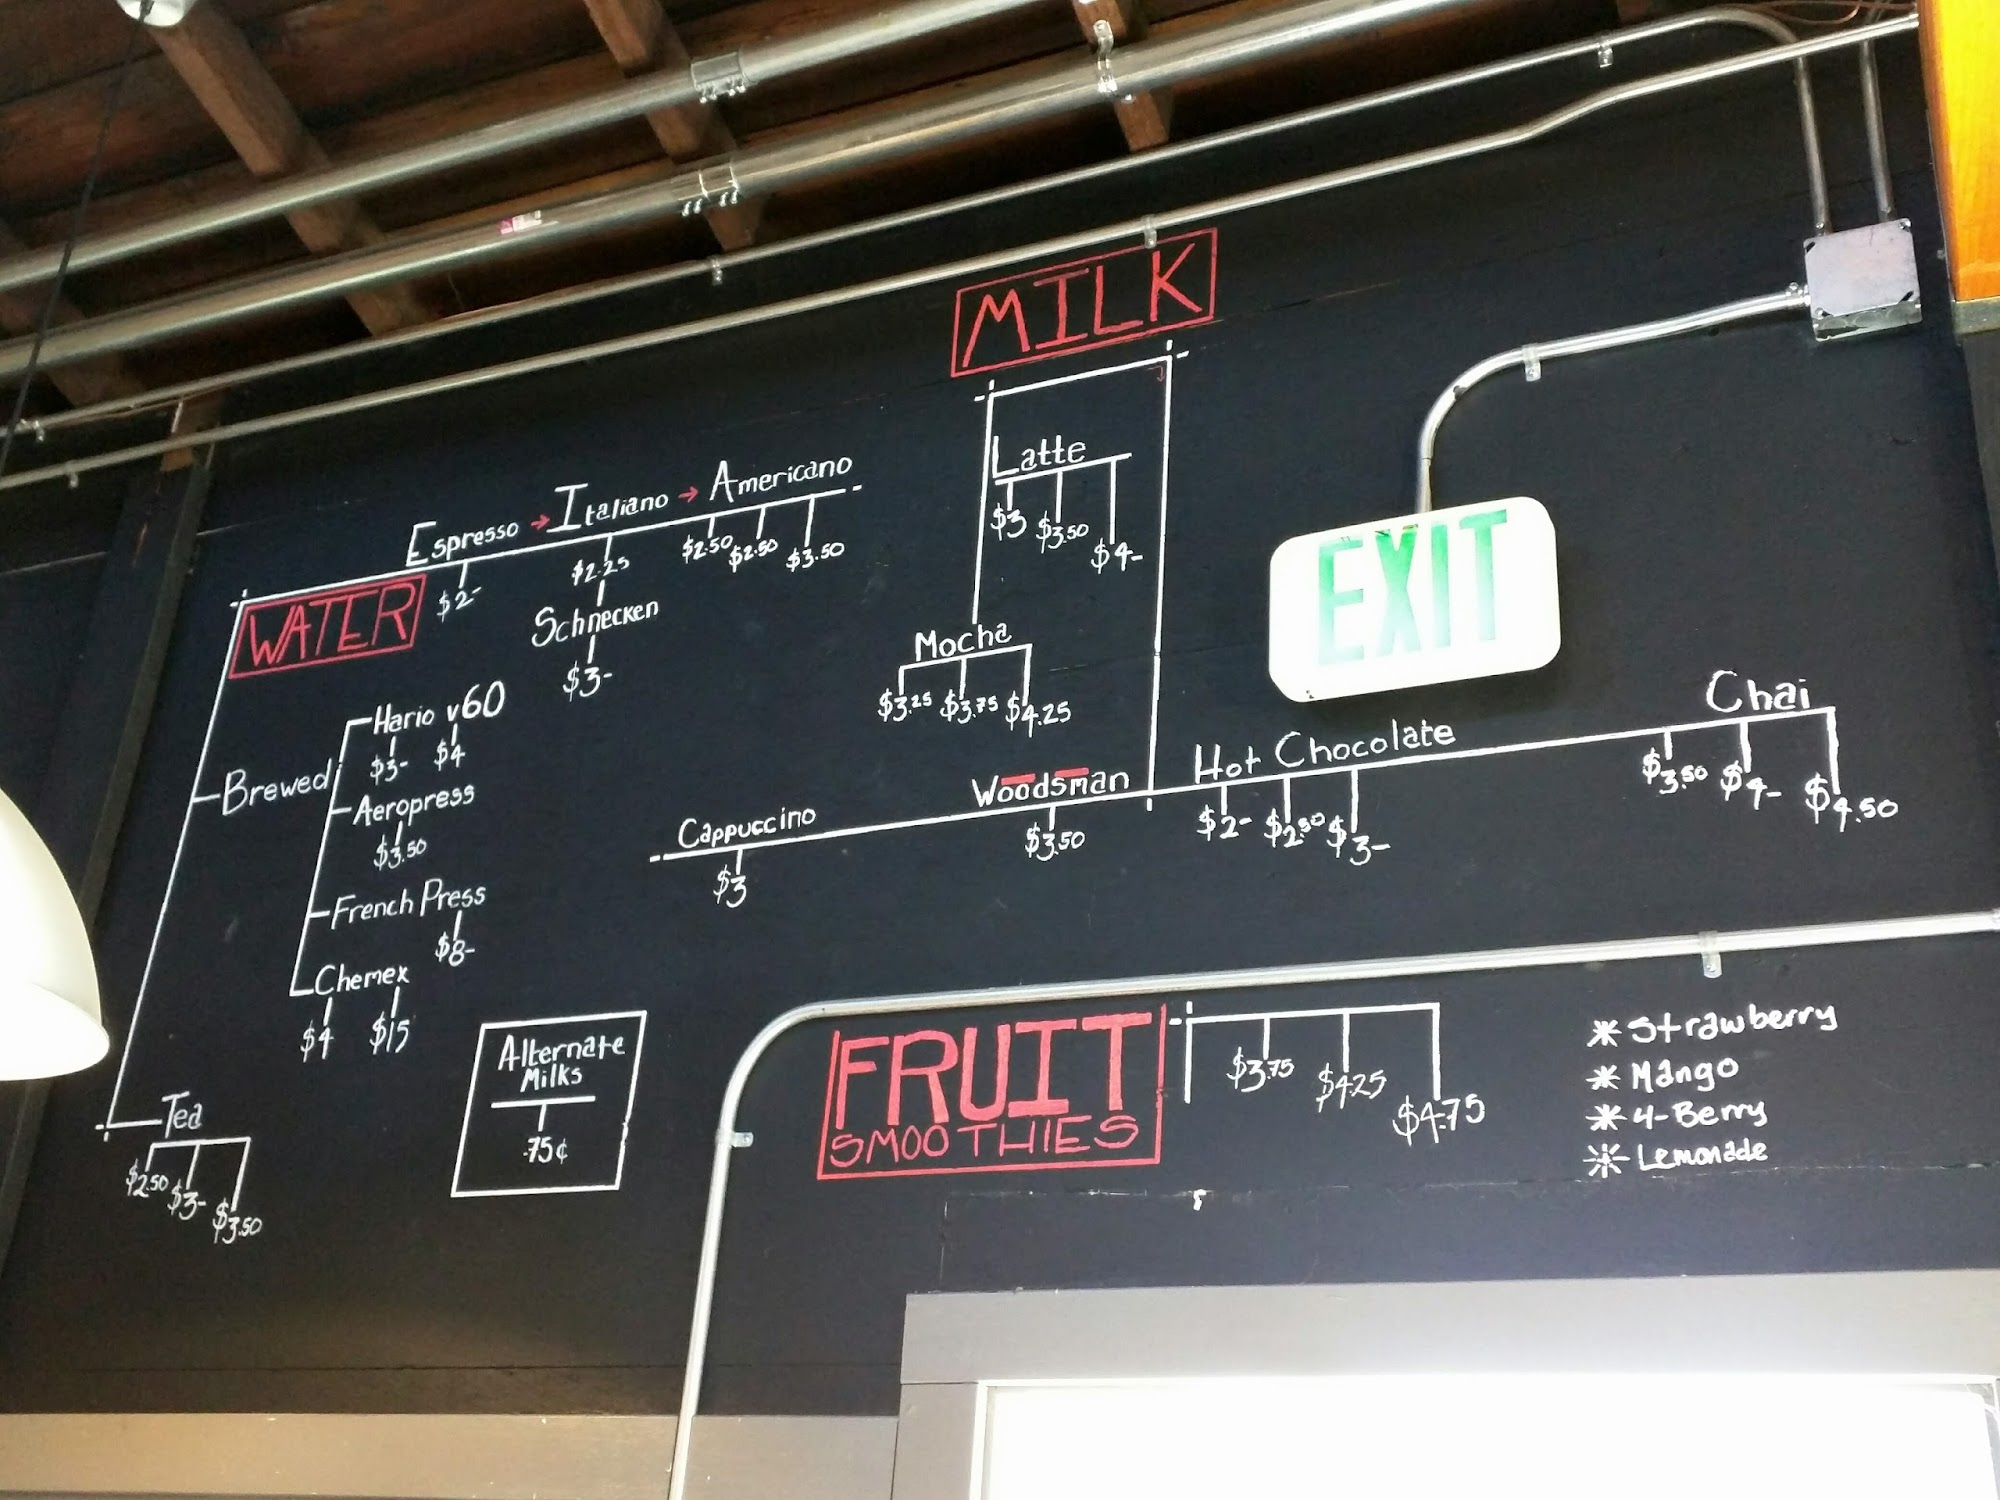 MILK
Latte
$3 $3.50 $4-
Mocha
$3.25 $3.75 $4.25
Espresso → Italiano → Americano
$2- $2.25 $2.50 $2.50 $3.50
Schnecken
$3-
WATER
Brewed
Hario v60
$3- $4
Aeropress
$3.50
French Press
$8-
Chemex
$4 $15
Tea
$2.50 $3- $3.50
Cappuccino Woodsman Hot Chocolate Chai
$3 $3.50 $2- $2.50 $3- $3.50 $4- $4.50
EXIT
Alternate
Milks
.75¢
FRUIT
SMOOTHIES
$3.75 $4.25 $4.75
Strawberry
Mango
4-Berry
Lemonade